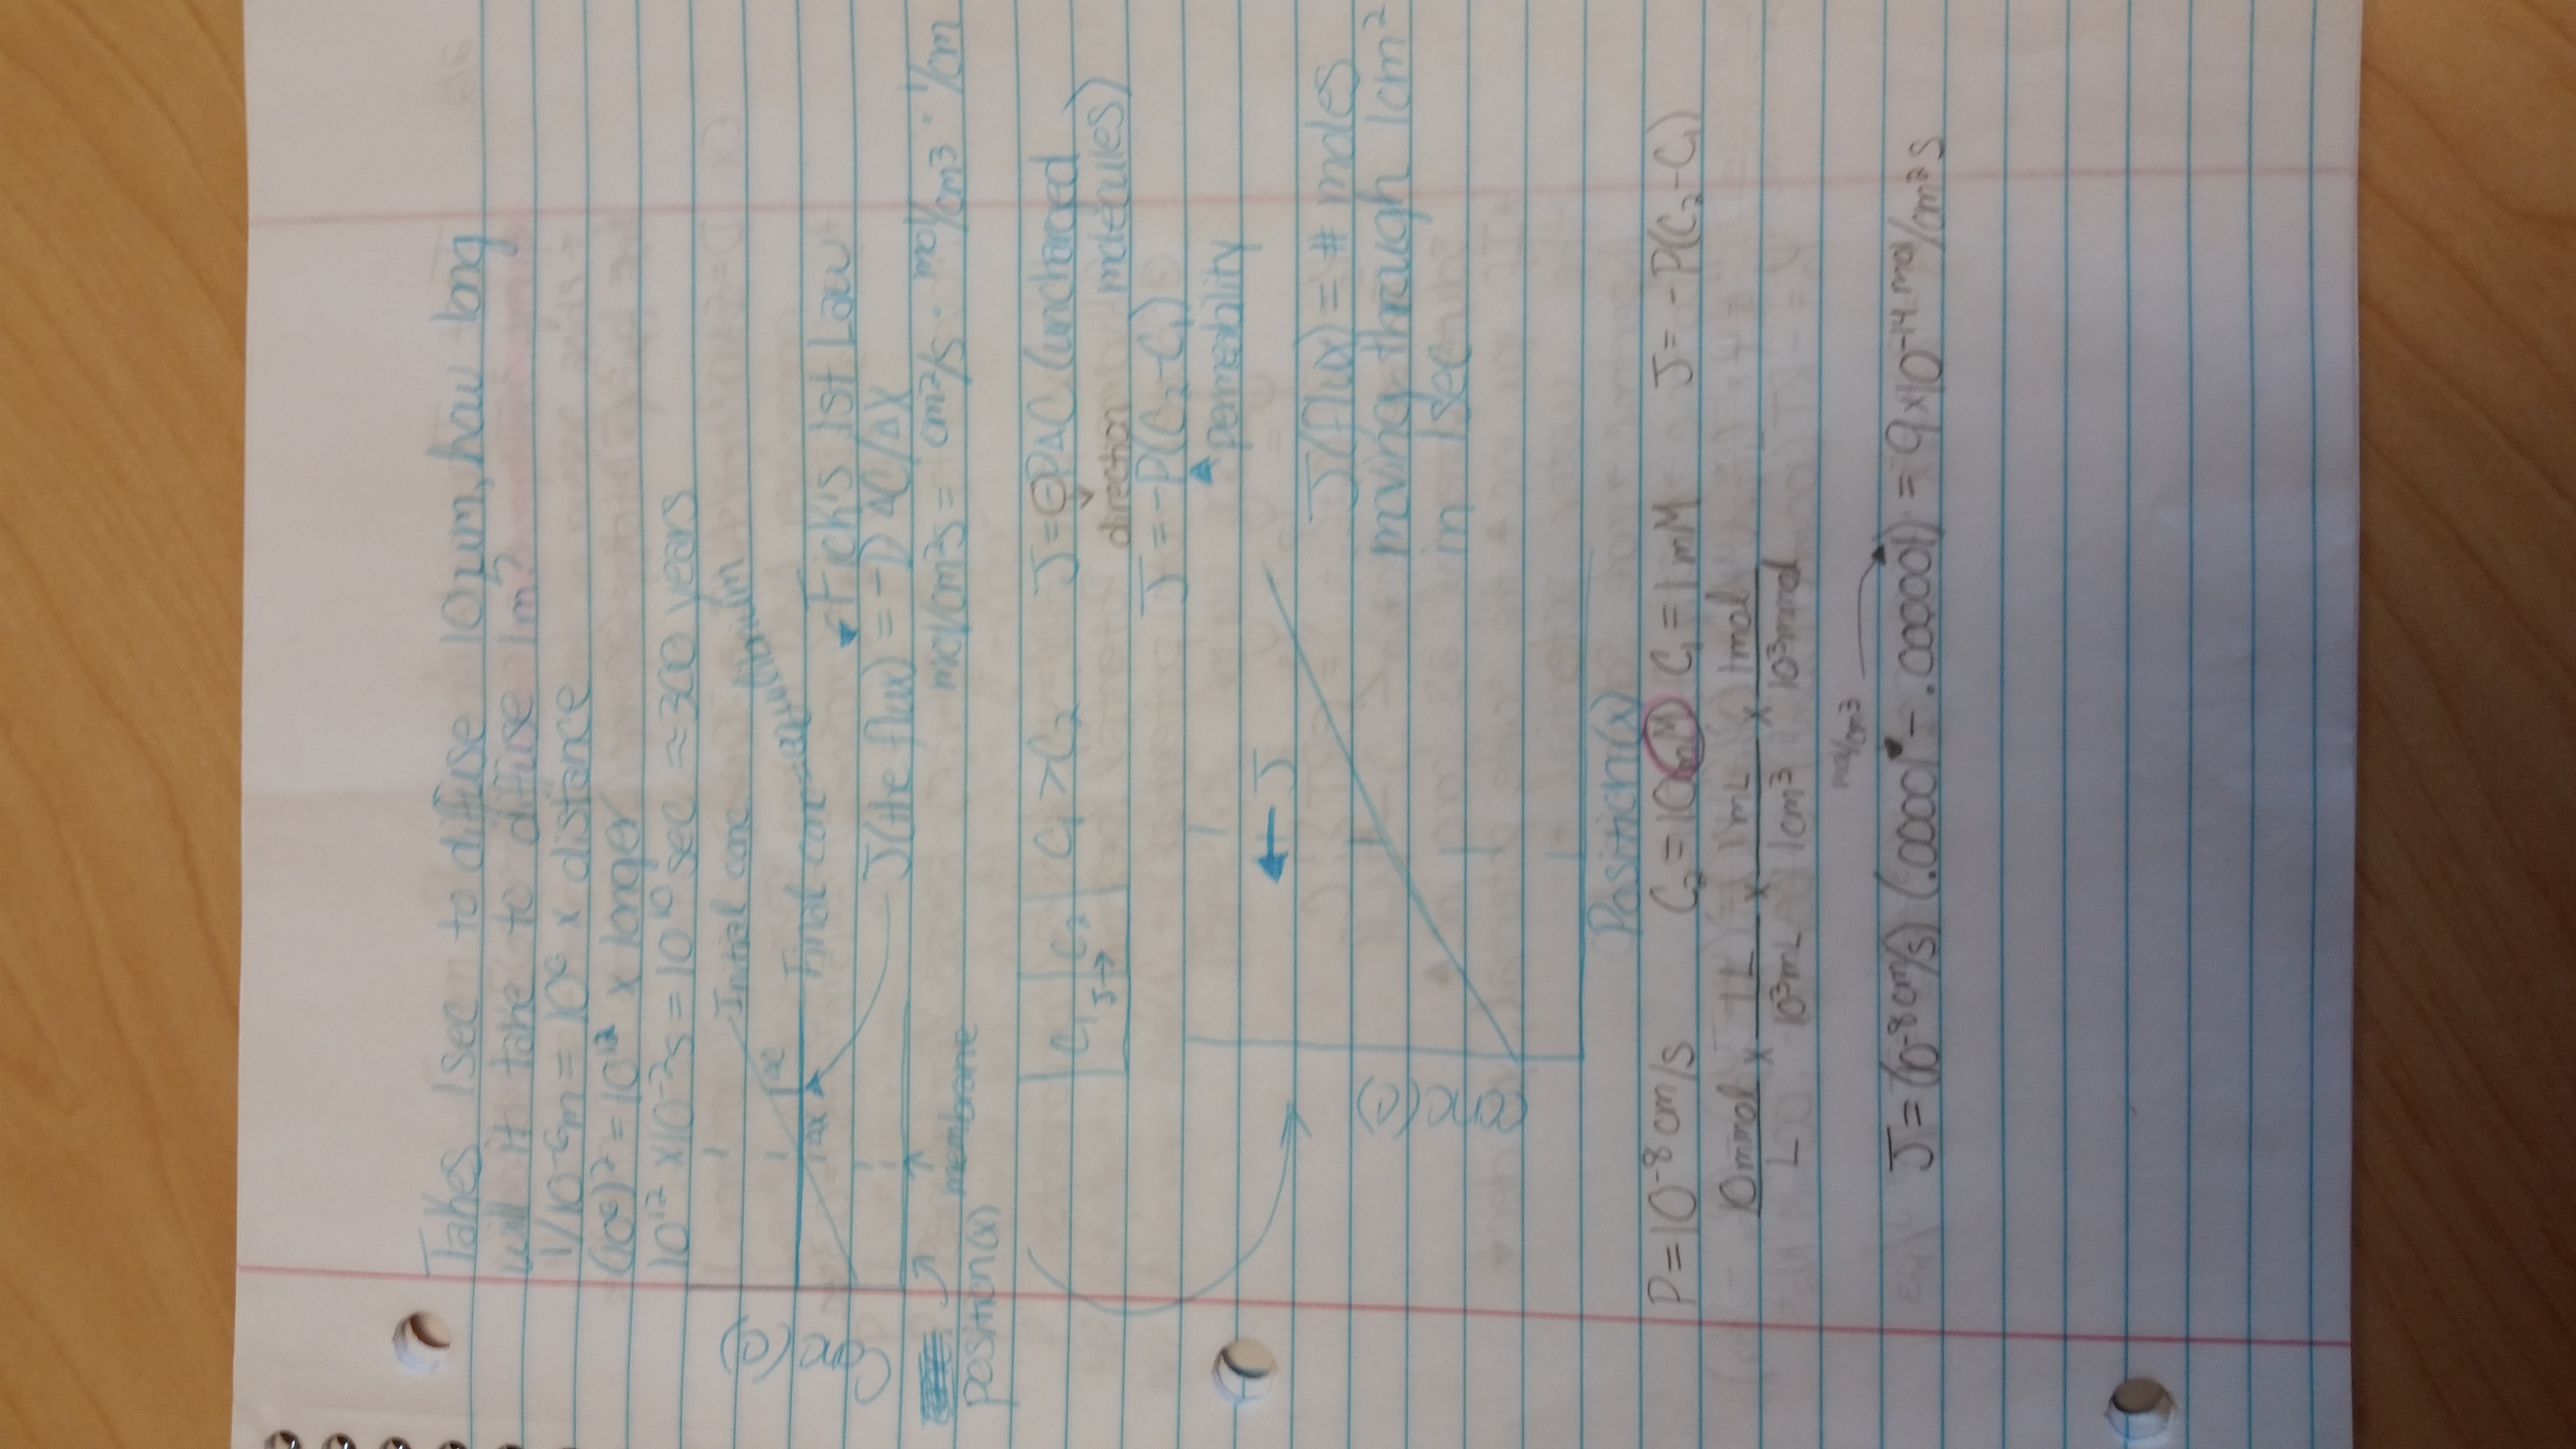 Takes 1 sec to diffuse 10µm, how long
will it take to diffuse 1m?
1/10⁻⁶m = 10⁶ x distance
(10⁶)² = 10¹² x longer
10¹² x 10⁻²s = 10¹⁰ sec ≈ 300 years
Initial conc
Final conc
(C)
ΔX
Fick's 1st Law
J (the flux) = -D ΔC/ΔX
mol/cm²s = cm²/s · mol/cm³ · 1/cm
membrane
position(x)
C₁ C₂ C₁ > C₂ J = -PΔC (uncharged
J→ direction molecules)
J = -P(C₂-C₁)
permeability
← J
J (flux) = # moles
moving through 1cm²
in 1 sec
(C)
Position(x)
P = 10⁻⁸ cm/s C₂ = 10mM C₁ = 1mM J = -P(C₂-C₁)
10mmol x 1L x 1mL x 1mol
L 10³mL 1cm³ 10³mmol
mol/cm³
J = (10⁻⁸cm/s) (.00001 - .000001) = 9x10⁻¹⁴ mol/cm²s